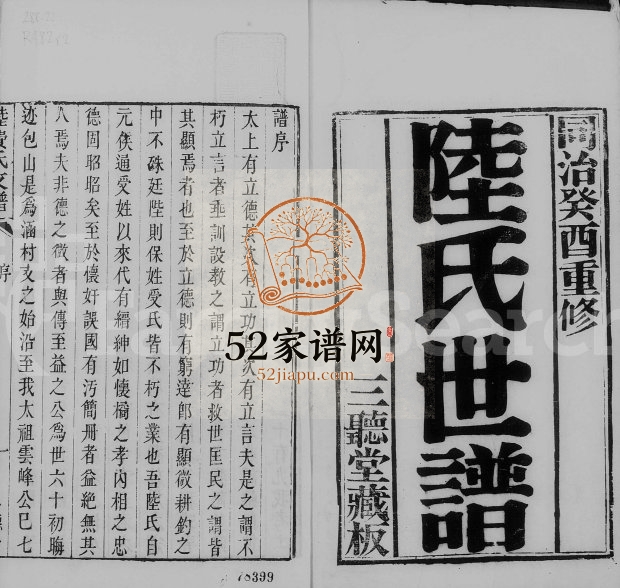 同治癸酉重修
陸氏世譜
三聽堂藏板
譜序
太上有立德其次有立功其次有立言夫是之謂不
朽立言者垂訓設教之謂立功者救世匡民之謂皆
其顯焉者也至於立德則有窮達卽有顯微耕釣之
中不殊廷陛則保姓受氏皆不朽之業也吾陸氏自
元侯通受姓以來代有縉紳如懐橘之孝內相之忠
德固昭昭矣至於懐奸誤國有汚簡册者益絶無其
人焉夫非德之徵者與傳至益之公爲世六十初晦
迹包山是爲涵村支之始沿至我太祖雲峰公巳七
序
52家谱网
52jiapu.com
78399